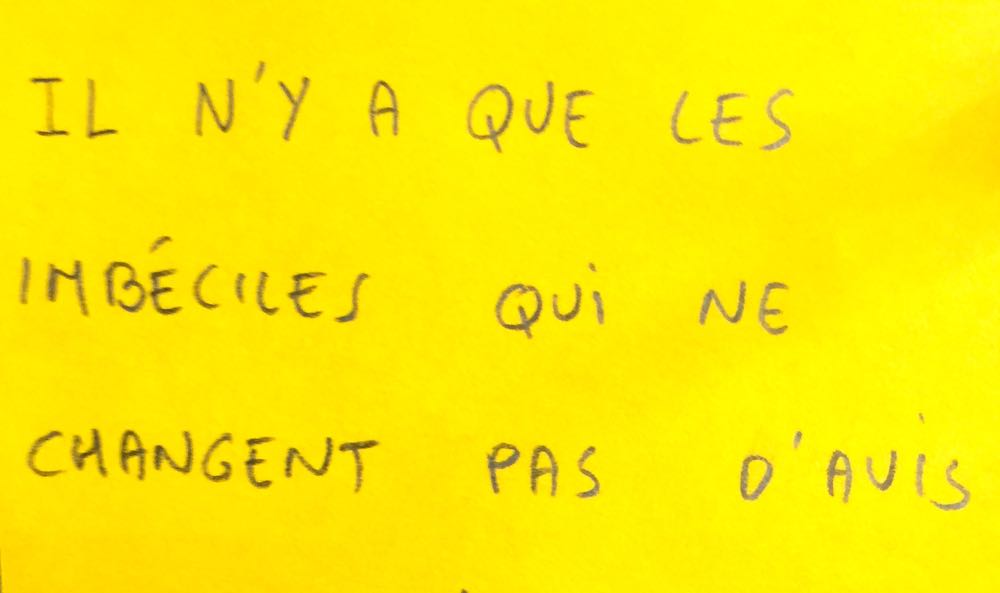 IL N'Y A QUE LES
IMBÉCILES QUi NE
CHANGENT PAS D'AVIS